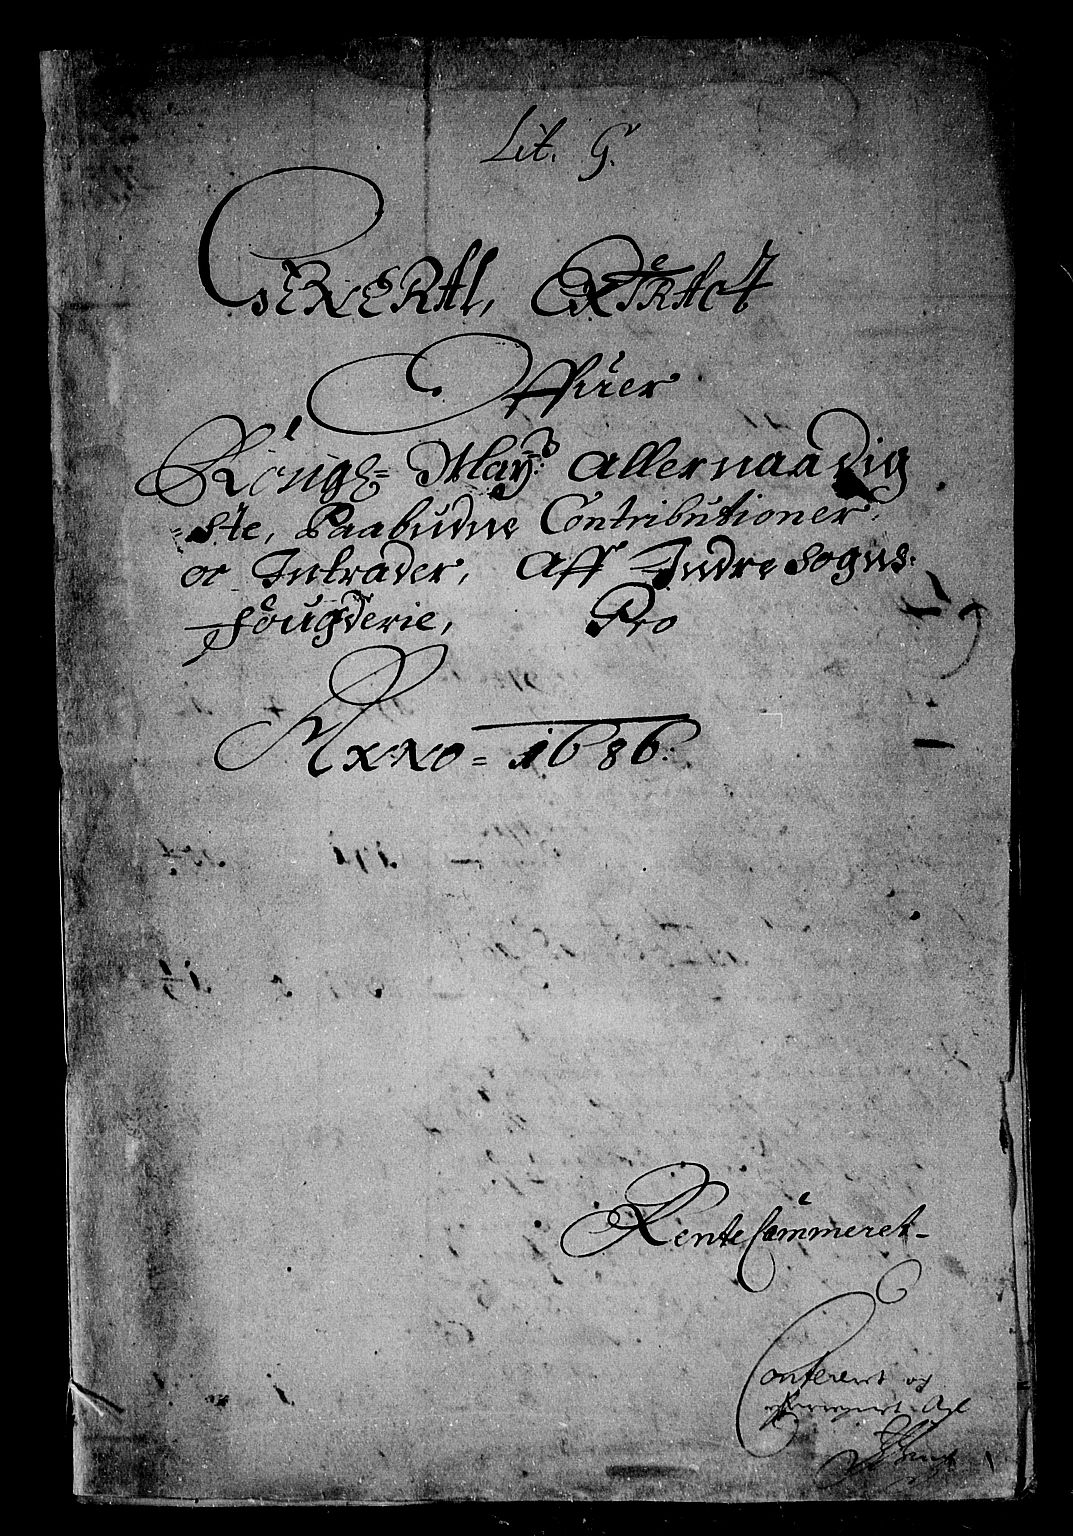 Lit. G.
GENERAL, EXTRACT
Offuer
Kongl= May:tz Allernaadig
=ste, Paabudne Contributioner,
oc Intrader, Aff Indre Sogns:
fougderie, Pro
ANNO= 1686:
Rente Cammeret-
Confererit og